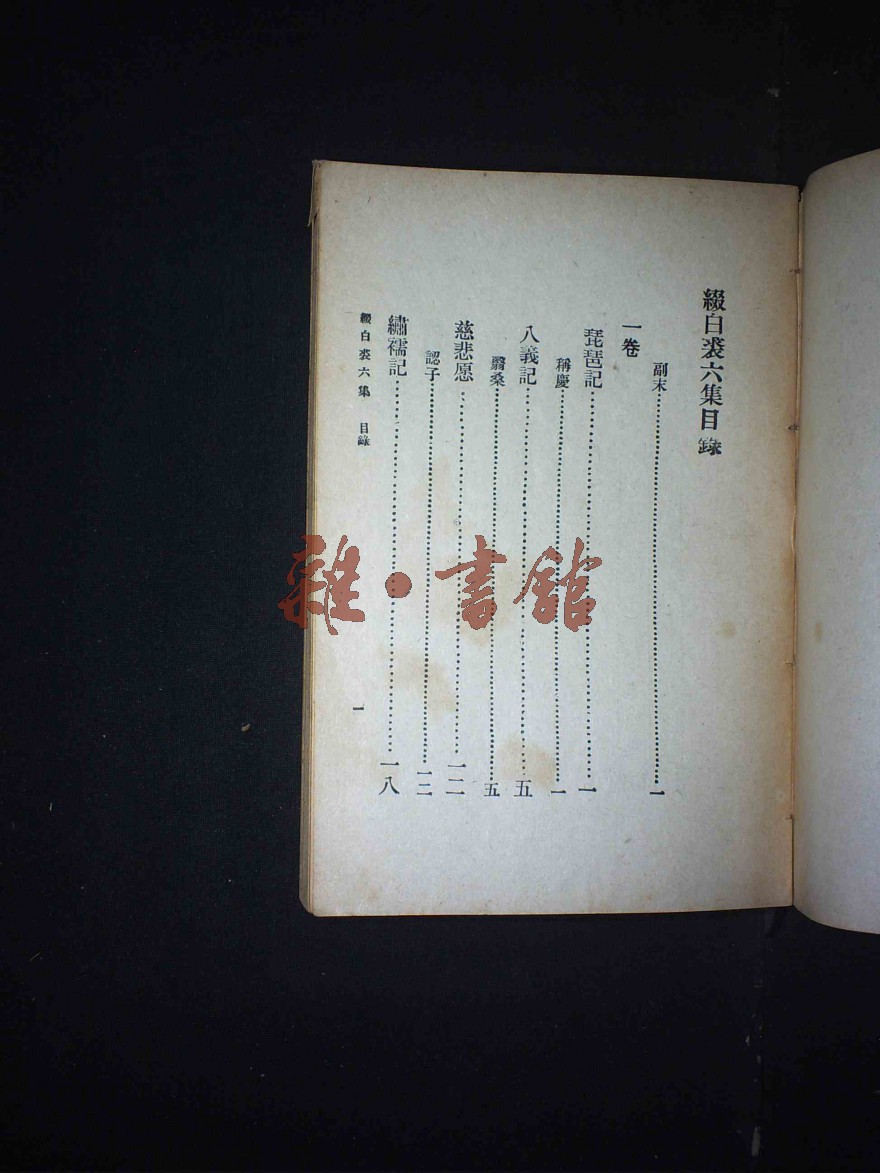 綴白裘六集目錄
副末……一
一卷
琵琶記……一
稱慶……一
八義記……五
翳桑……五
慈悲愿……一二
認子……一二
繡襦記……一八
綴白裘六集 目錄
一
雜·書館